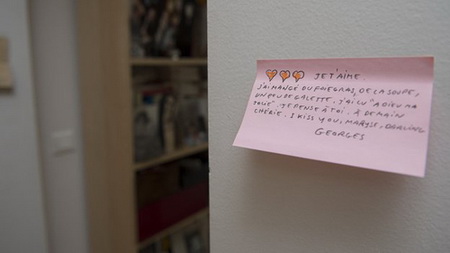 JE T'AIME.
J'AI MANGÉ DU FOIE GRAS, DE LA SOUPE,
UN PEU DE GALETTE. J'AI LU "ADIEU MA
JE PENSE À TOI. À DEMAIN
CHÉRIE. I KISS YOU, MARYSE, DARLING
GEORGES